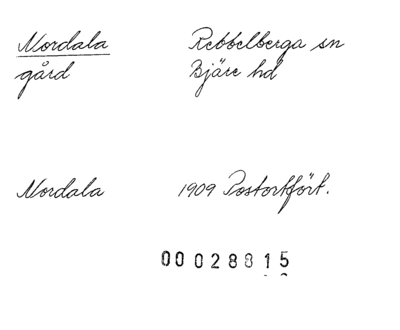 Nordala Rebbelberga sn
gård Bjäre hd
Nordala 1909 Postortfört.
00028815